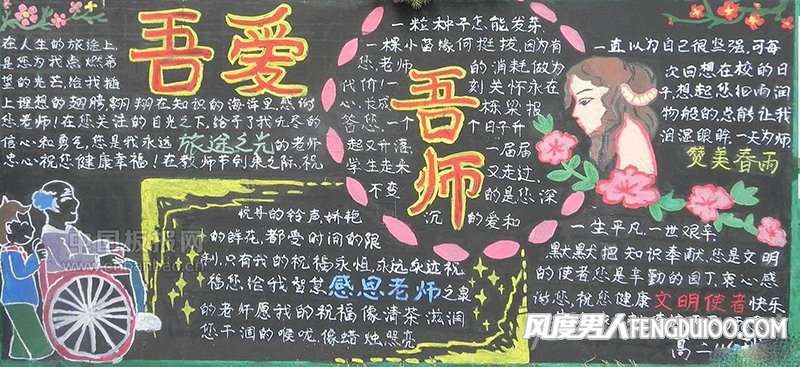 吾爱
吾师
在人生的旅途上,
是您为我点燃希
望的光芒,给我插
上理想的翅膀,翱翔在知识的海洋里,您们
您老师!在您关注的目光之下,给予了我无尽的
信心和勇气,您是我永远旅途之光的老师
衷心祝您健康幸福!在教师节到来之际,祝
一粒种子怎能发芽
一棵小苗缘何挺拔,因为有
您老师的消耗做为
代价!一刻关怀永在
心,长成栋梁报
答您,一个个日子升
起又升落一届届
学生走来又走过
不变的是您深
沉的爱和
一直以为自己很坚强,可每
次回想在校的日
子,想起您旧雨润
物般的点能让我
泪湿眼眸,一天为师
赞美春雨
悦耳的铃声,娇艳
的鲜花,都受时间的限
制,只有我的祝福永恒,永远永远祝
福您,给我智慧感恩老师之泉
的老师愿我的祝福像清茶滋润
您干涸的喉咙,像蜡烛照亮
一生平凡,一世艰辛
默默把知识奉献,您是文明
的使者您是辛勤的园丁,衷心感
谢您,祝您健康文明使者快乐
高二
中国板报网
风度男人FENGDU100.COM